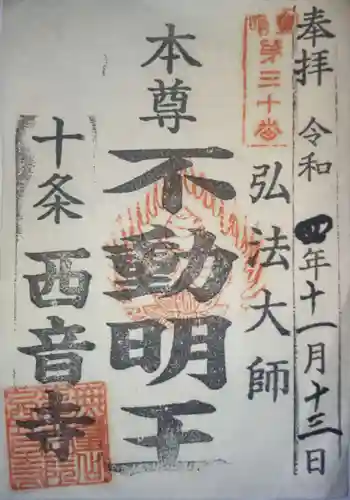 奉拝 令和四年十一月十三日
第三十番
弘法大師
本尊 不動明王
十条 西音寺